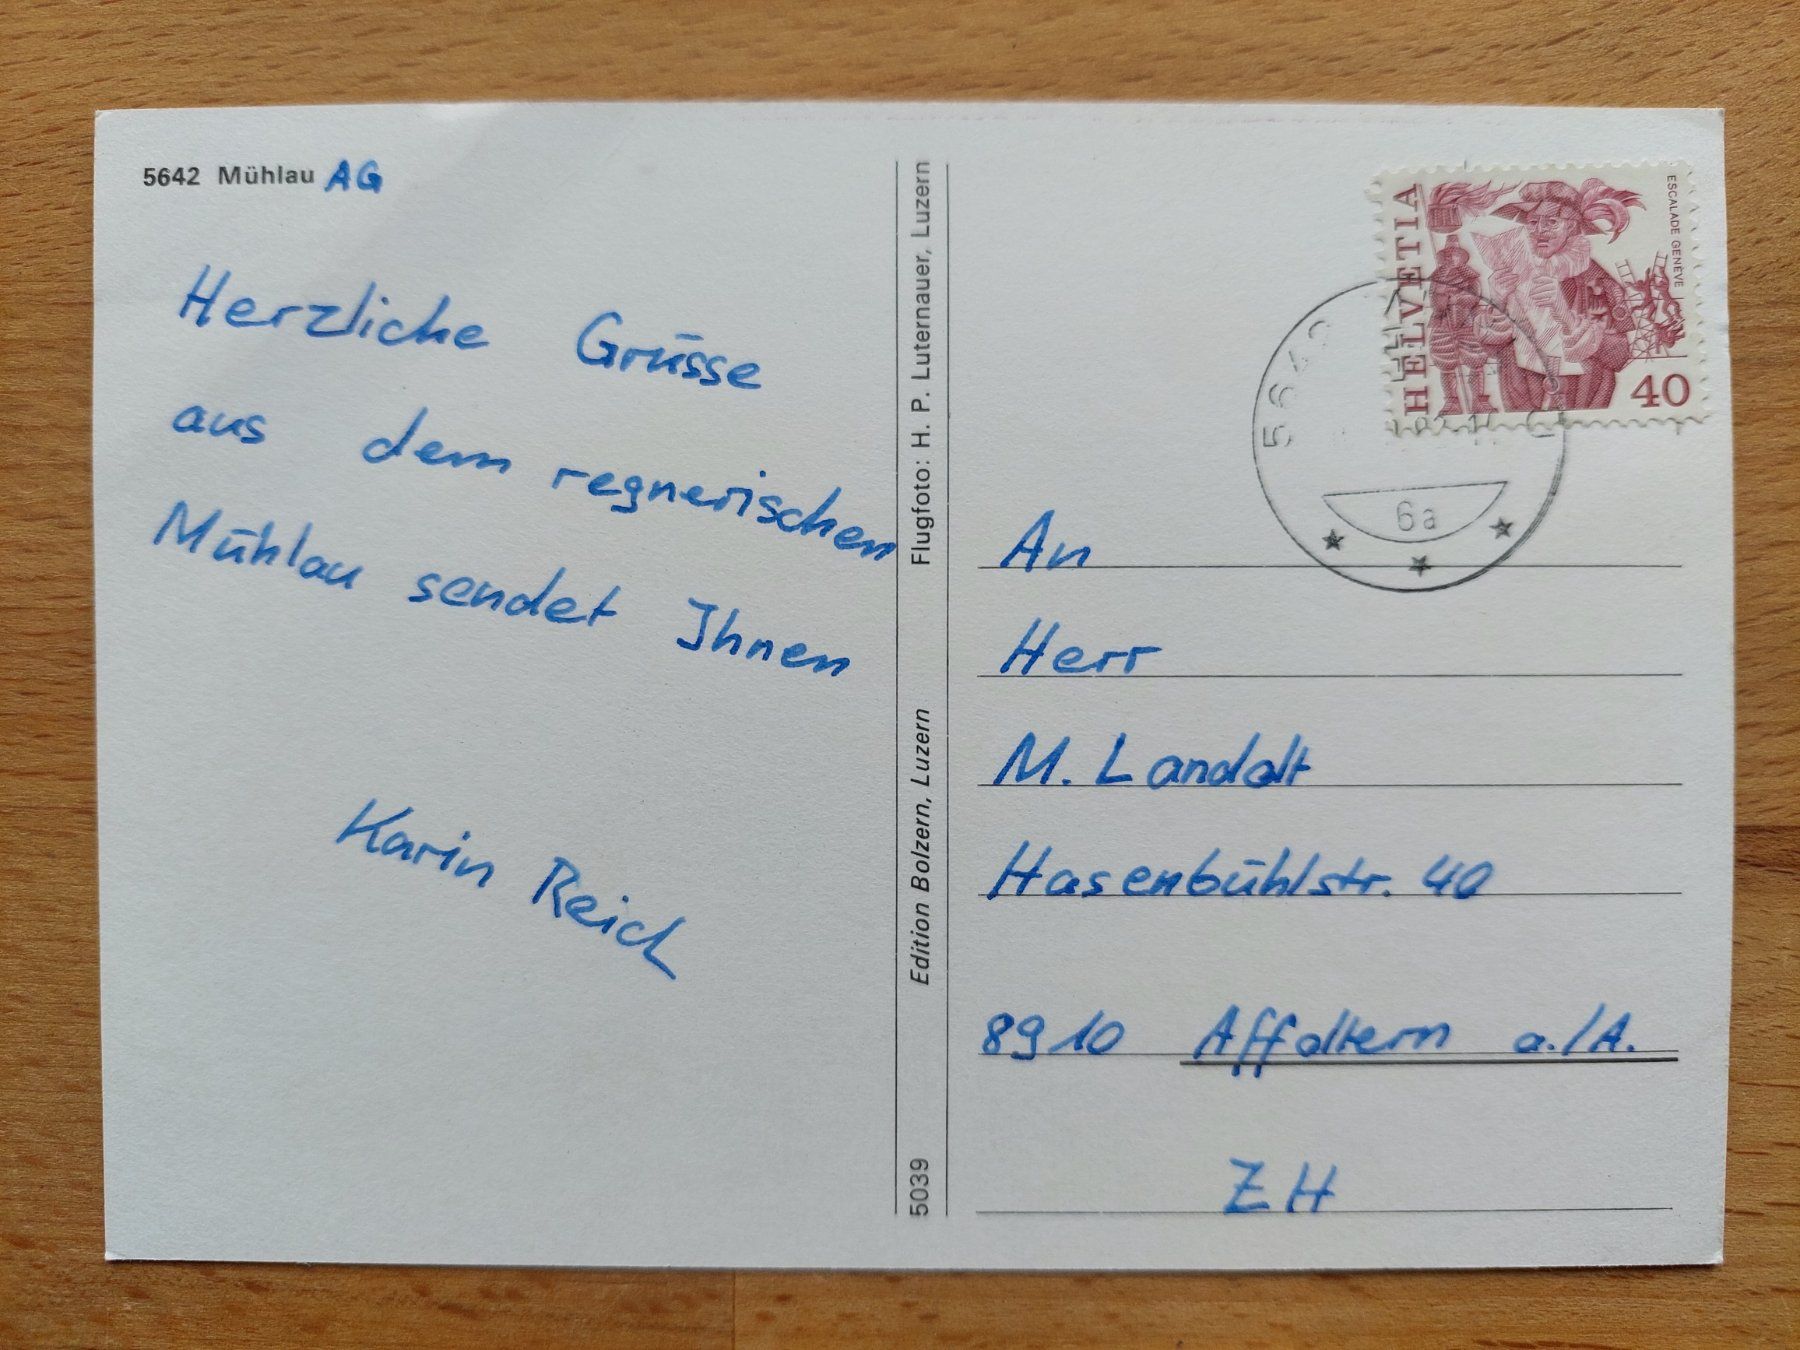 5642 Mühlau AG
Herzliche Grüsse
aus dem regnerischen
Mühlau sendet Ihnen
Karin Reich
Flugfoto: H. P. Luternauer, Luzern
Edition Bolzern, Luzern
5039
HELVETIA
ESCALADE GENÈVE
40
6a
An
Herr
M. Landolt
Hasenbühlstr. 40
8910 Affoltern a./A.
ZH